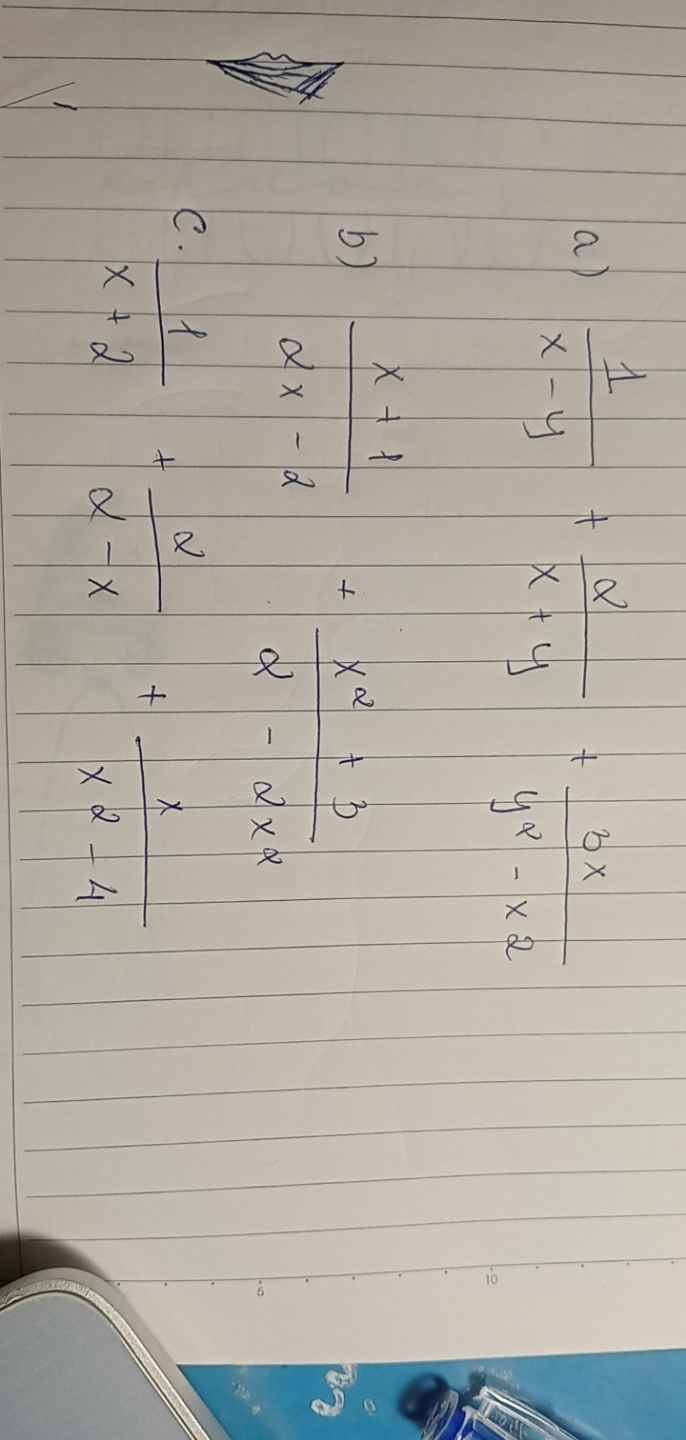 a) 1/(x - y) + 2/(x + y) + 3x/(y2 - x2)
b) (x + 1)/(2x - 2) + (x2 + 3)/(2 - 2x2)
c. 1/(x + 2) + 2/(2 - x) + x/(x2 - 4)
5 10